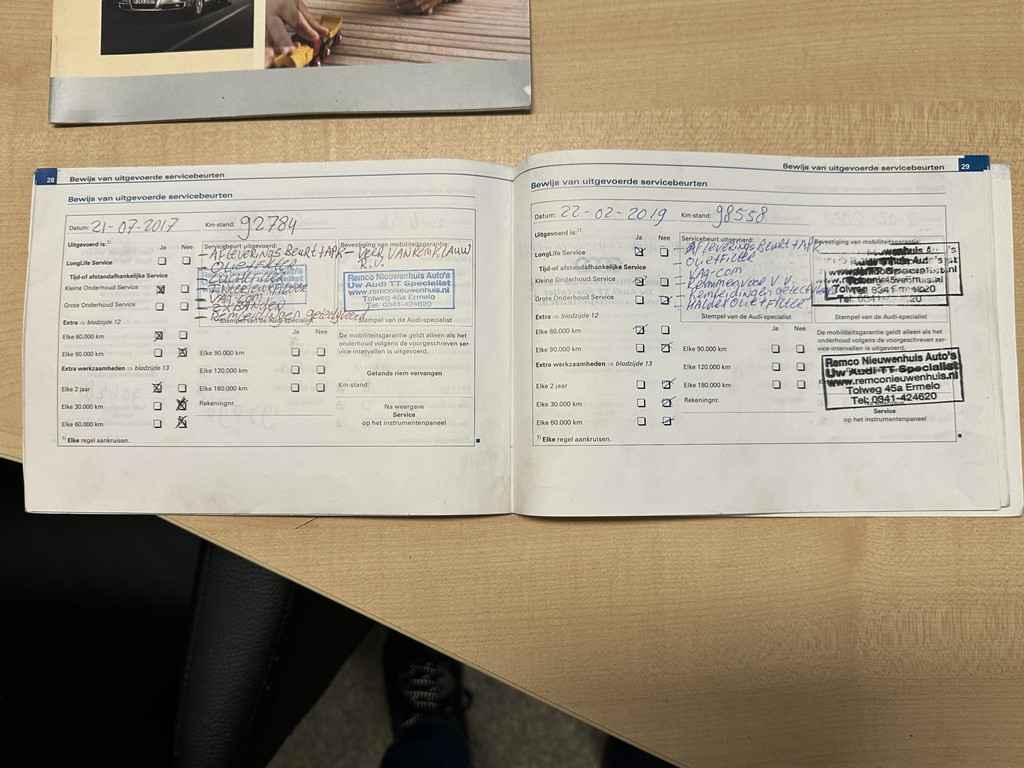 28 Bewijs van uitgevoerde servicebeurten
Bewijs van uitgevoerde servicebeurten
Datum: 21-07-2017 Km-stand: 92784
Uitgevoerd is:¹⁾ Ja Nee
Servicebeurt uitgevoerd: Bevestiging van mobiliteitsgarantie
LongLife Service
- Afleveringsbeurt + APK
Tijd-of afstandafhankelijke Service
- Oliefilter
Kleine Onderhoud Service
Grote Onderhoud Service
- Remleidingen
Remco Nieuwenhuis Auto's
Uw Audi TT Specialist
www.remconieuwenhuis.nl
Tolweg 45a Ermelo
Tel: 0341-424620
Stempel van de Audi-specialist
Stempel van de Audi-specialist
Extra ⇨ bladzijde 12
Ja Nee
Elke 60.000 km
Elke 90.000 km
Elke 90.000 km
De mobiliteitsgarantie geldt alleen als het
onderhoud volgens de voorgeschreven ser-
vice-intervallen is uitgevoerd.
Extra werkzaamheden ⇨ bladzijde 13
Elke 120.000 km
Getande riem vervangen
Elke 2 jaar
Elke 180.000 km
Km-stand:
Elke 30.000 km
Rekeningnr.
Na weergave
Service
op het instrumentenpaneel
Elke 60.000 km
¹⁾ Elke regel aankruisen.
Bewijs van uitgevoerde servicebeurten 29
Bewijs van uitgevoerde servicebeurten
Datum: 22-02-2019 Km-stand: 98558
Uitgevoerd is:¹⁾ Ja Nee
Servicebeurt uitgevoerd: Bevestiging van mobiliteitsgarantie
LongLife Service
- Afleveringsbeurt + APK
- Oliefilter
Tijd-of afstandafhankelijke Service
- VAG-com
Kleine Onderhoud Service
Grote Onderhoud Service
- Remleidingen
- Haldex Olie + Filter
Tel: 0341-424620
Stempel van de Audi-specialist
Stempel van de Audi-specialist
Extra ⇨ bladzijde 12
Ja Nee
Elke 60.000 km
Elke 90.000 km
Elke 90.000 km
De mobiliteitsgarantie geldt alleen als het
onderhoud volgens de voorgeschreven ser-
vice-intervallen is uitgevoerd.
Extra werkzaamheden ⇨ bladzijde 13
Elke 120.000 km
Elke 2 jaar
Elke 180.000 km
Remco Nieuwenhuis Auto's
Uw Audi TT Specialist
www.remconieuwenhuis.nl
Tolweg 45a Ermelo
Tel: 0341-424620
Elke 30.000 km
Rekeningnr.
Service
op het instrumentenpaneel
Elke 60.000 km
¹⁾ Elke regel aankruisen.